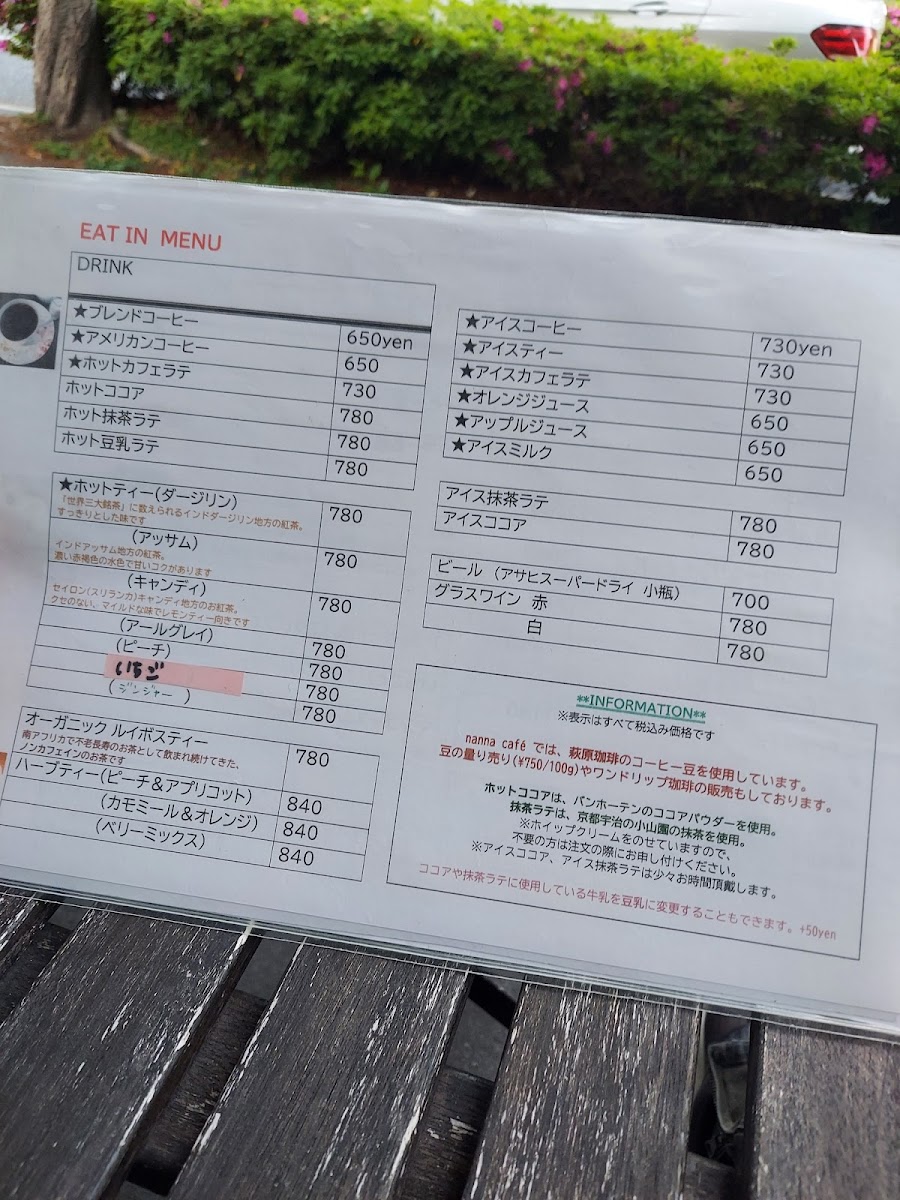 EAT IN MENU
DRINK
★ブレンドコーヒー 650yen
★アメリカンコーヒー 650
★ホットカフェラテ 730
ホットココア 780
ホット抹茶ラテ 780
ホット豆乳ラテ 780
★ホットティー(ダージリン) 780
「世界三大銘茶」に数えられるインドダージリン地方の紅茶。
すっきりとした味です
(アッサム) 780
インドアッサム地方の紅茶。
濃い赤褐色の水色で甘いコクがあります
(キャンディ) 780
セイロン(スリランカ)キャンディ地方のお紅茶。
クセのない、マイルドな味でレモンティー向きです
(アールグレイ) 780
(ピーチ) 780
いちご 780
(ジンジャー) 780
オーガニック ルイボスティー 780
南アフリカで不老長寿のお茶として飲まれ続けてきた、
ノンカフェインのお茶です
ハーブティー(ピーチ＆アプリコット) 840
(カモミール＆オレンジ) 840
(ベリーミックス) 840
★アイスコーヒー 730yen
★アイスティー 730
★アイスカフェラテ 730
★オレンジジュース 650
★アップルジュース 650
★アイスミルク 650
アイス抹茶ラテ 780
アイスココア 780
ビール (アサヒスーパードライ 小瓶) 700
グラスワイン 赤 780
白 780
**INFORMATION**
※表示はすべて税込み価格です
nanna café では、萩原珈琲のコーヒー豆を使用しています。
豆の量り売り(¥750/100g)やワンドリップ珈琲の販売もしております。
ホットココアは、バンホーテンのココアパウダーを使用。
抹茶ラテは、京都宇治の小山園の抹茶を使用。
※ホイップクリームをのせていますので、
不要の方は注文の際にお申し付けください。
※アイスココア、アイス抹茶ラテは少々お時間頂戴します。
ココアや抹茶ラテに使用している牛乳を豆乳に変更することもできます。+50yen